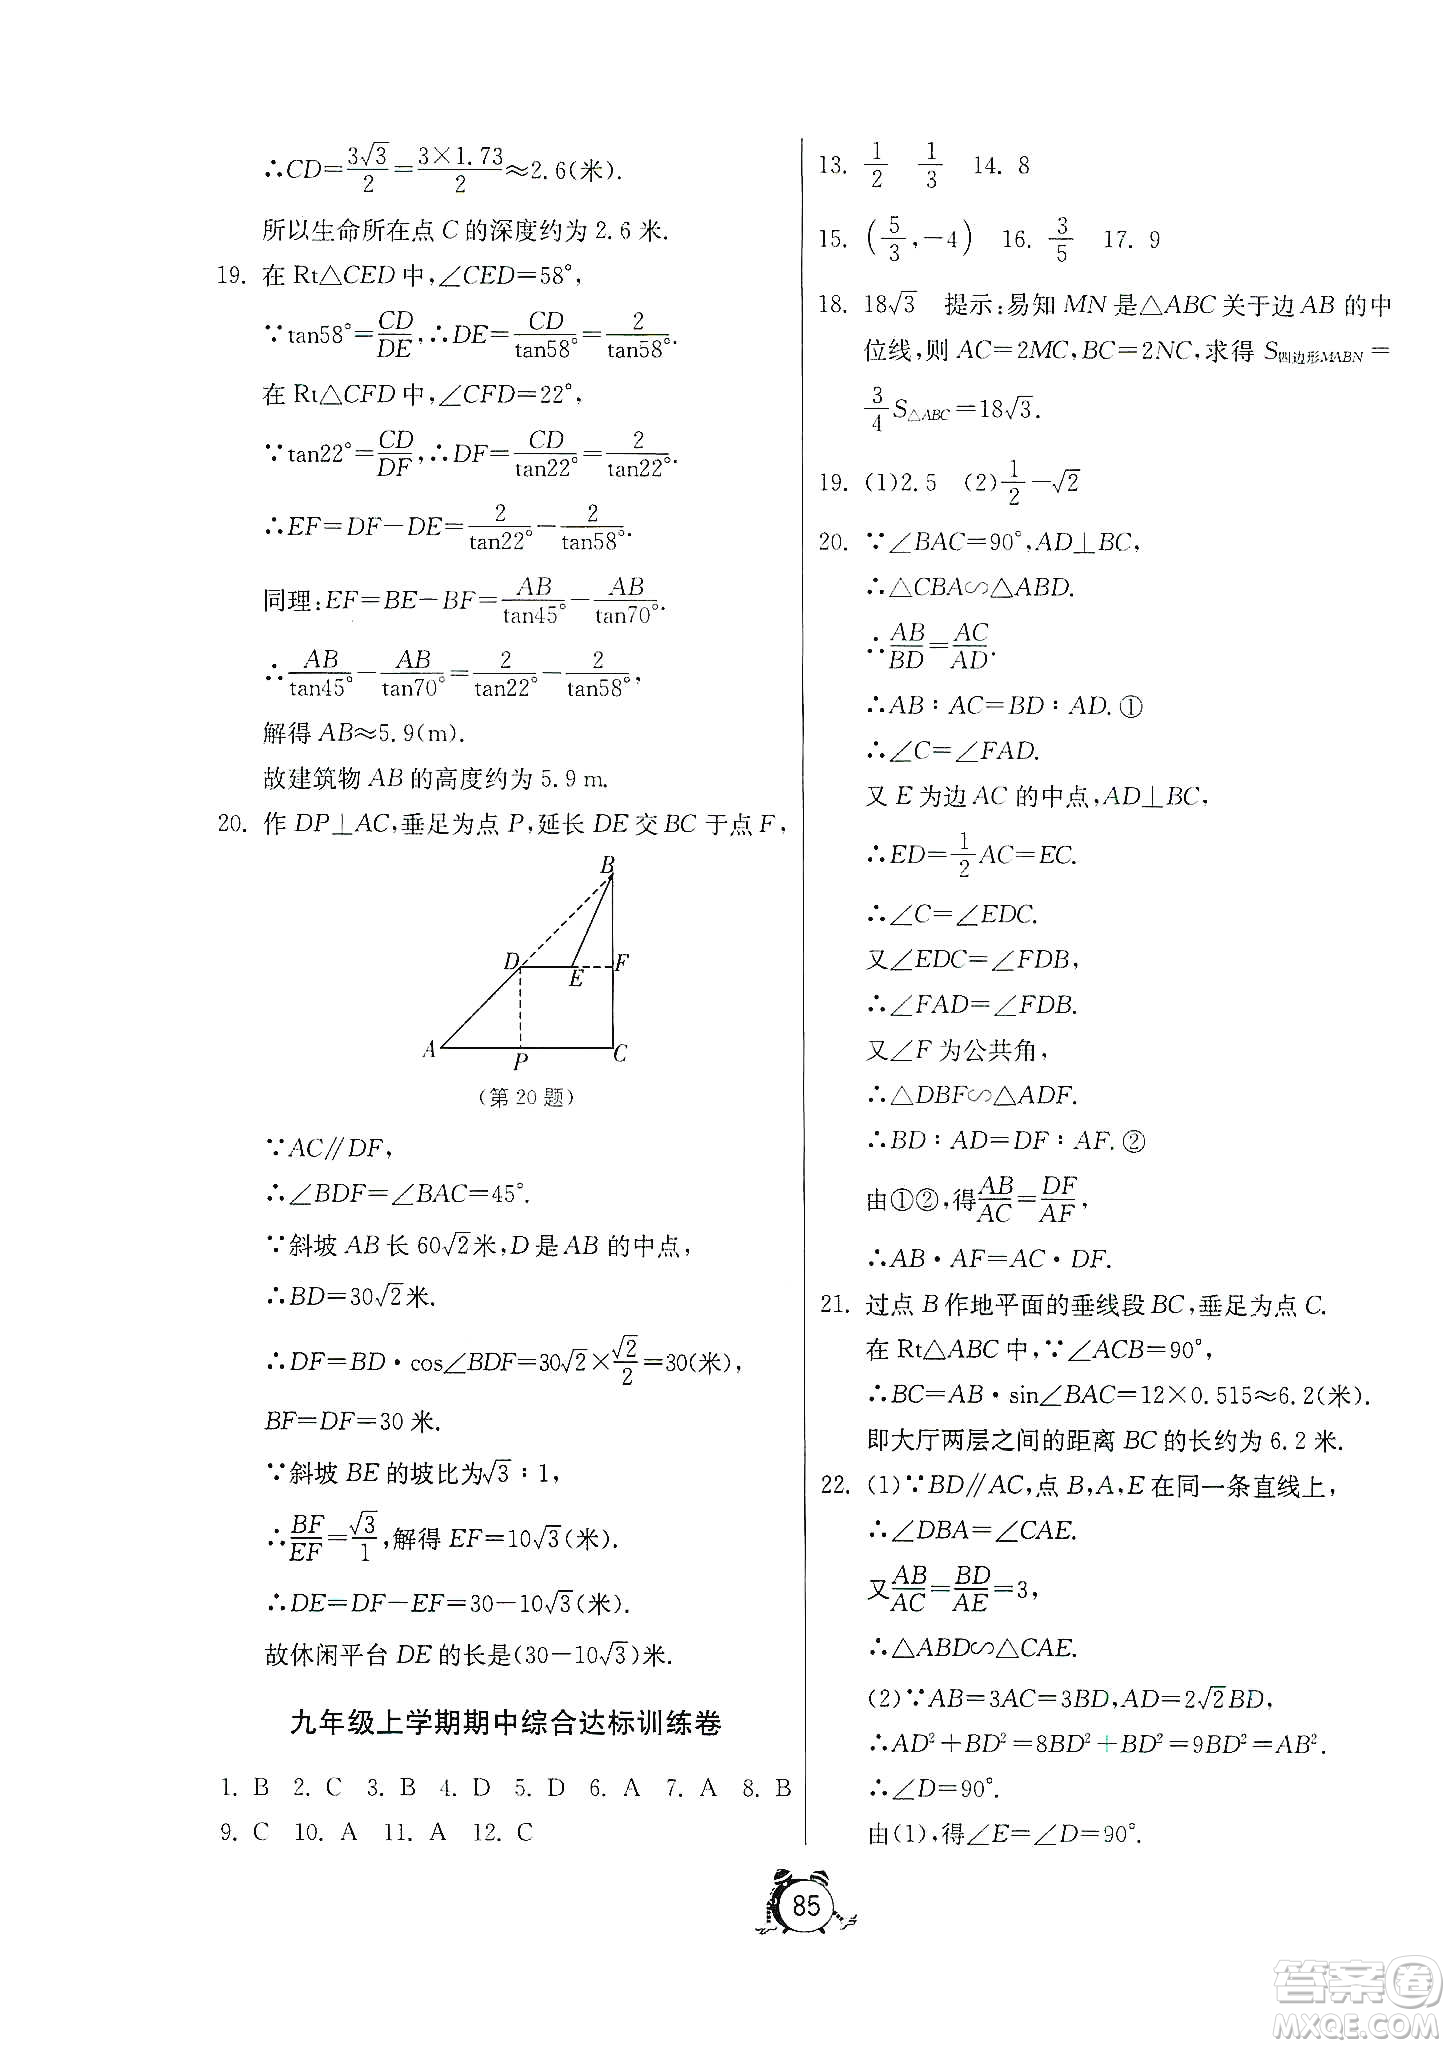 ∴CD=3√3/2=3×1.73/2≈2.6(米).
所以生命所在点 C 的深度约为 2.6 米.
19. 在 Rt△CED 中,∠CED=58°,
∵tan58°=CD/DE,∴DE=CD/tan58°=2/tan58°.
在 Rt△CFD 中,∠CFD=22°,
∵tan22°=CD/DF,∴DF=CD/tan22°=2/tan22°.
∴EF=DF-DE=2/tan22°-2/tan58°.
同理:EF=BE-BF=AB/tan45°-AB/tan70°.
∴AB/tan45°-AB/tan70°=2/tan22°-2/tan58°,
解得 AB≈5.9(m).
故建筑物 AB 的高度约为 5.9 m.
20. 作 DP⊥AC,垂足为点 P,延长 DE 交 BC 于点 F,
B
D
E
F
A
P
C
(第 20 题)
∵AC∥DF,
∴∠BDF=∠BAC=45°.
∵斜坡 AB 长 60√2米,D 是 AB 的中点,
∴BD=30√2米.
∴DF=BD·cos∠BDF=30√2×√2/2=30(米),
BF=DF=30 米.
∵斜坡 BE 的坡比为√3∶1,
∴BF/EF=√3/1,解得 EF=10√3(米).
∴DE=DF-EF=30-10√3(米).
故休闲平台 DE 的长是(30-10√3)米.
九年级上学期期中综合达标训练卷
1. B 2. C 3. B 4. D 5. D 6. A 7. A 8. B
9. C 10. A 11. A 12. C
13. 1/2 1/3 14. 8
15. (5/3,-4) 16. 3/5 17. 9
18. 18√3 提示:易知 MN 是△ABC 关于边 AB 的中
位线,则 AC=2MC,BC=2NC,求得 S四边形MABN=
3/4 S△ABC=18√3.
19. (1)2.5 (2)1/2-√2
20. ∵∠BAC=90°,AD⊥BC,
∴△CBA∽△ABD.
∴AB/BD=AC/AD.
∴AB∶AC=BD∶AD.①
∴∠C=∠FAD.
又 E 为边 AC 的中点,AD⊥BC,
∴ED=1/2 AC=EC.
∴∠C=∠EDC.
又∠EDC=∠FDB,
∴∠FAD=∠FDB.
又∠F 为公共角,
∴△DBF∽△ADF.
∴BD∶AD=DF∶AF.②
由①②,得AB/AC=DF/AF,
∴AB·AF=AC·DF.
21. 过点 B 作地平面的垂线段 BC,垂足为点 C.
在 Rt△ABC 中,∵∠ACB=90°,
∴BC=AB·sin∠BAC=12×0.515≈6.2(米).
即大厅两层之间的距离 BC 的长约为 6.2 米.
22. (1)∵BD∥AC,点 B,A,E 在同一条直线上,
∴∠DBA=∠CAE.
又AB/AC=BD/AE=3,
∴△ABD∽△CAE.
(2)∵AB=3AC=3BD,AD=2√2BD,
∴AD²+BD²=8BD²+BD²=9BD²=AB².
∴∠D=90°.
由(1),得∠E=∠D=90°.
85
答案圈
MXQE.COM